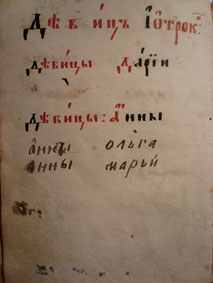 Дѣвицъ І Ѻтрок:
дѣвицы Даріи
Дѣвицы: Анны
Анны Ольга
Анны Марьи